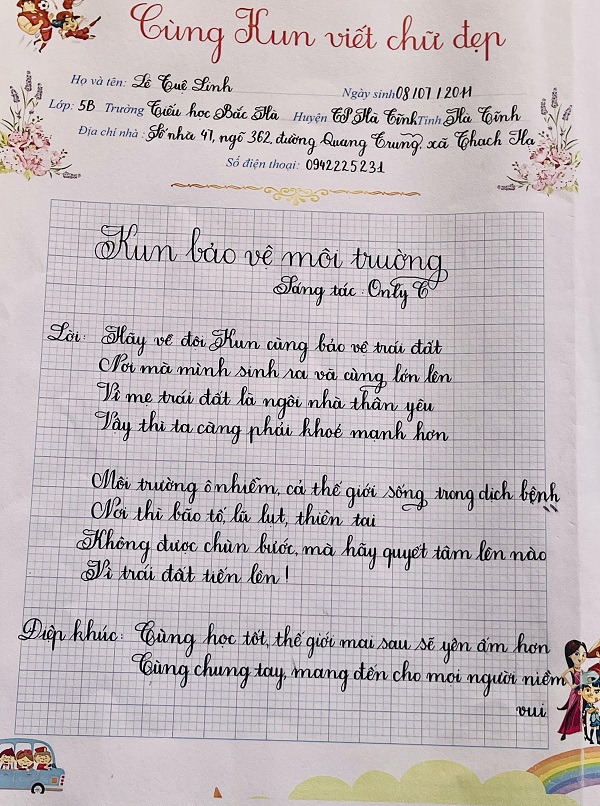 Cùng Kun viết chữ đẹp
Họ và tên: Lê Tuê Linh Ngày sinh 08/07/2011
Lớp: 5B Trường Tiểu học Bắc Hà Huyện TP Hà Tĩnh Tỉnh Hà Tĩnh
Địa chỉ nhà: Số nhà 41, ngõ 362, đường Quang Trung, xã Thach Ha
Số điện thoại: 0942225231
Kun bảo vệ môi trường
Sáng tác: Only C
Lời: Hãy về đôi Kun cùng bảo vê trái đất
Nơi mà mình sinh ra và cùng lớn lên
Vì me trái đất là ngôi nhà thân yêu
Vậy thì ta càng phải khoẻ manh hơn
Môi trường ô nhiễm, cả thế giới sống trong dịch bệnh
Nơi thì bão tố, lũ lut, thiên tai
Không được chùn bước, mà hãy quyết tâm lên nào
Vì trái đất tiến lên!
Điệp khúc: Cùng học tốt, thế giới mai sau sẽ yên ấm hơn
Cùng chung tay, mang đến cho moi người niềm
vui